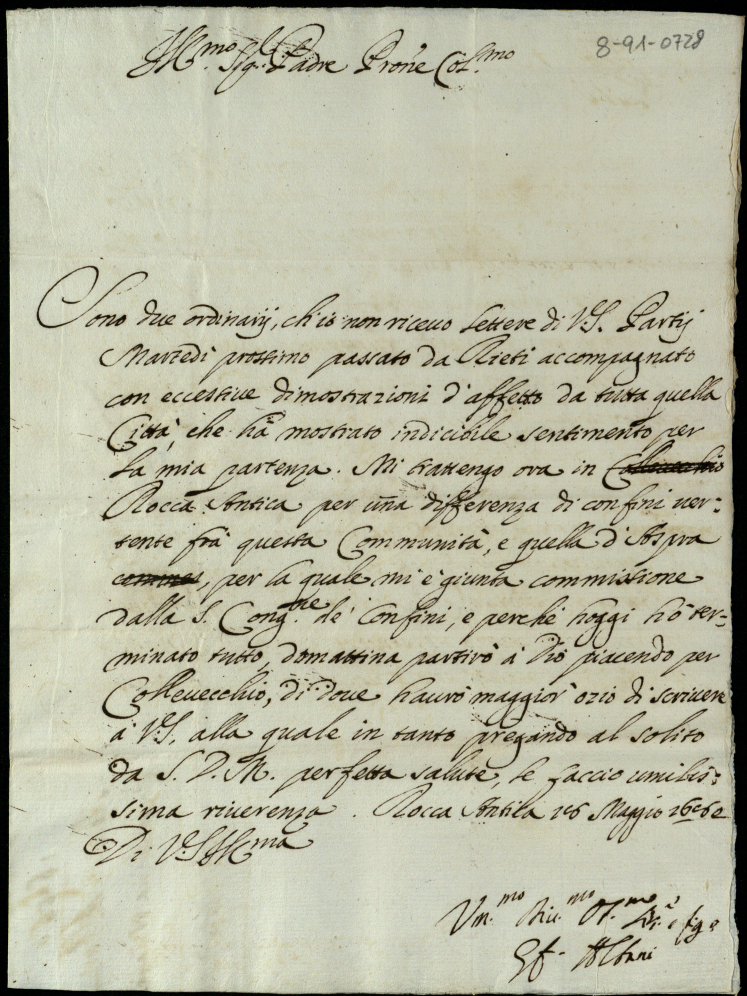 8-91-0728
Ill.mo Sig.r Padre Prone Col.mo
Sono due ordinarij, ch'io non riceuo lettere di V.S. Partij
Martedi prossimo passato da Rieti accompagnato
con eccessiue dimostrazioni d'affetto da tutta quella
Città, che hà mostrato indicibile sentimento per
la mia partenza. Mi trattengo ora in Colleuecchio
Rocca Antica per una differenza di confini uer-
tente frà questa Communità, e quella d'Aspra
, per la quale mi è giunta commissione
dalla S. Cong.ne de' Confini, e perche hoggi hò ter-
minato tutto, domattina partirò à Dio piacendo per
Colleuecchio, di doue haurò maggior ozio di scriuere
à V.S. alla quale in tanto pregando al solito
da S. D. M. perfetta salute, le faccio umilis-
sima riuerenza. Rocca Antica Maggio
Di V.S. Ill.ma
Um.mo Diu.mo Ob.mo
Albani